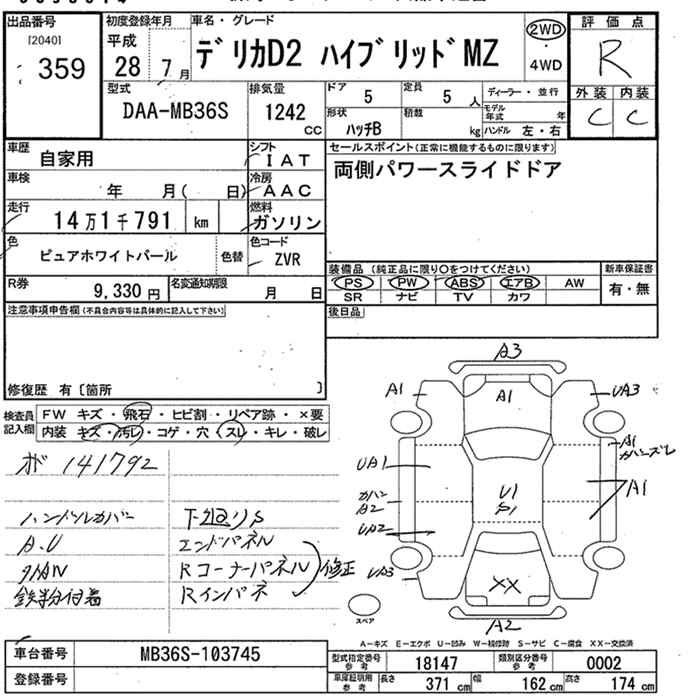 出品番号 初度登録年月 車名・グレード 2WD 評価点
[2040] 平成
359 28 7月 デリカD2 ハイブリッドMZ ・ 4WD R
型式 排気量 ドア 定員 ディーラー・並行 外装 内装
DAA-MB36S 1242 CC 5 5人 モデル年式 年 C C
形状 ハッチB 積載 kg ハンドル 左・右
車歴 自家用 シフト IAT セールスポイント(正常に機能するものに限ります)
車検 年 月( 日) 冷房 AAC 両側パワースライドドア
走行 14万1千791 km 燃料 ガソリン
色 ピュアホワイトパール 色替 色コード ZVR
装備品 (純正品に限り○をつけてください) 新車保証書
R券 9,330円 名変通知期限 月 日 PS PW ABS エアB AW 有・無
SR ナビ TV カワ
注意事項申告欄(不具合内容等は具体的に記入して下さい) 後日品
修復歴 有〔箇所 〕
検査員記入欄 FW キズ・飛石・ヒビ割・リペア跡・×要
内装 キズ・汚レ・コゲ・穴・スレ・キレ・破レ
メ 141792
ハンドルカバー 下廻りS
A.U エンドパネル
Rコーナーパネル 修正
鉄粉付着 Rインパネ
A3
A1 A1 UA3
A1
カバーズレ
UA1
U1
S1
A1
カバー
A2
UA2
UA3
XX
スペア
A2
A-キズ E-エクボ U-凹み W-補修跡 S-サビ C-腐食 XX-交換済
車台番号 MB36S-103745 型式指定番号 参考 18147 類別区分番号 参考 0002
登録番号 車庫証明用 参考 長さ 371 cm 幅 162 cm 高さ 174 cm